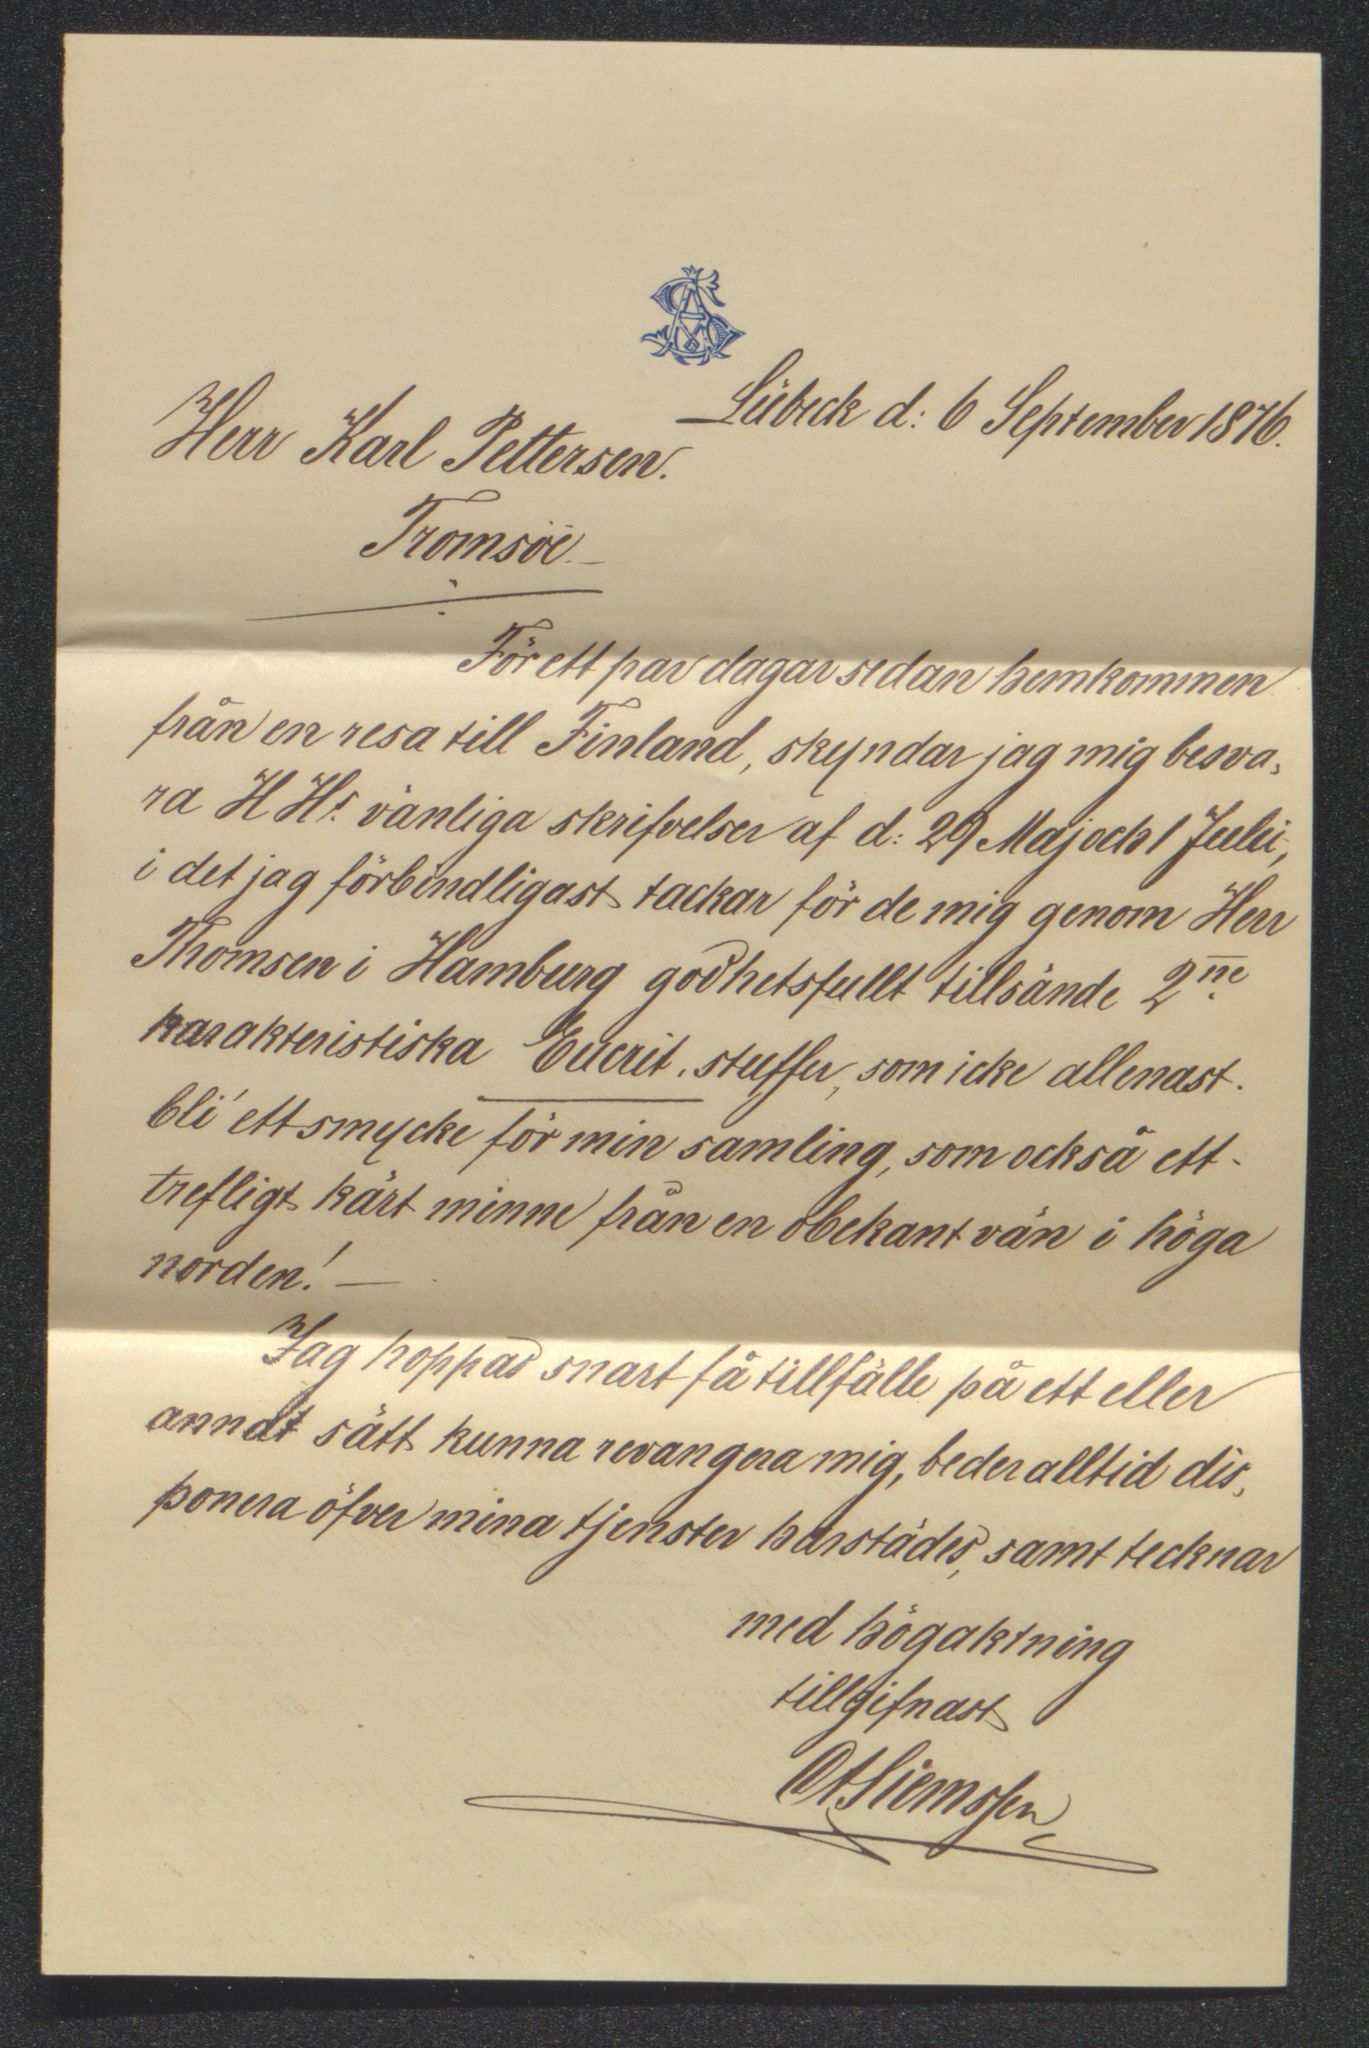 Lübeck d: 6 September 1876.
Herr Karl Pettersen.
Tromsöe.—
För ett par dagar sedan hemkommen
från en resa till Finland, skyndar jag mig besva,
ra H Hs. vänliga skrifvelser af d: 29 Maj och 1 Juli,
i det jag förbindligast tackar för de mig genom Herr
Thomsen i Hamburg godhetsfullt tillsände 2ne.
karakteristiska Eucrit, stuffer, som icke allenast.
bli ett smycke för min samling, som också ett.
trefligt kärt minne från en obekant vän i höga
norden! —
Jag hoppas snart få tillfälle på ett eller
anndt sätt kunna revangera mig, beder alltid dis,
ponera öfver mina tjenster härstädes, samt tecknar
med högaktning
tillgifnast
Siemssen